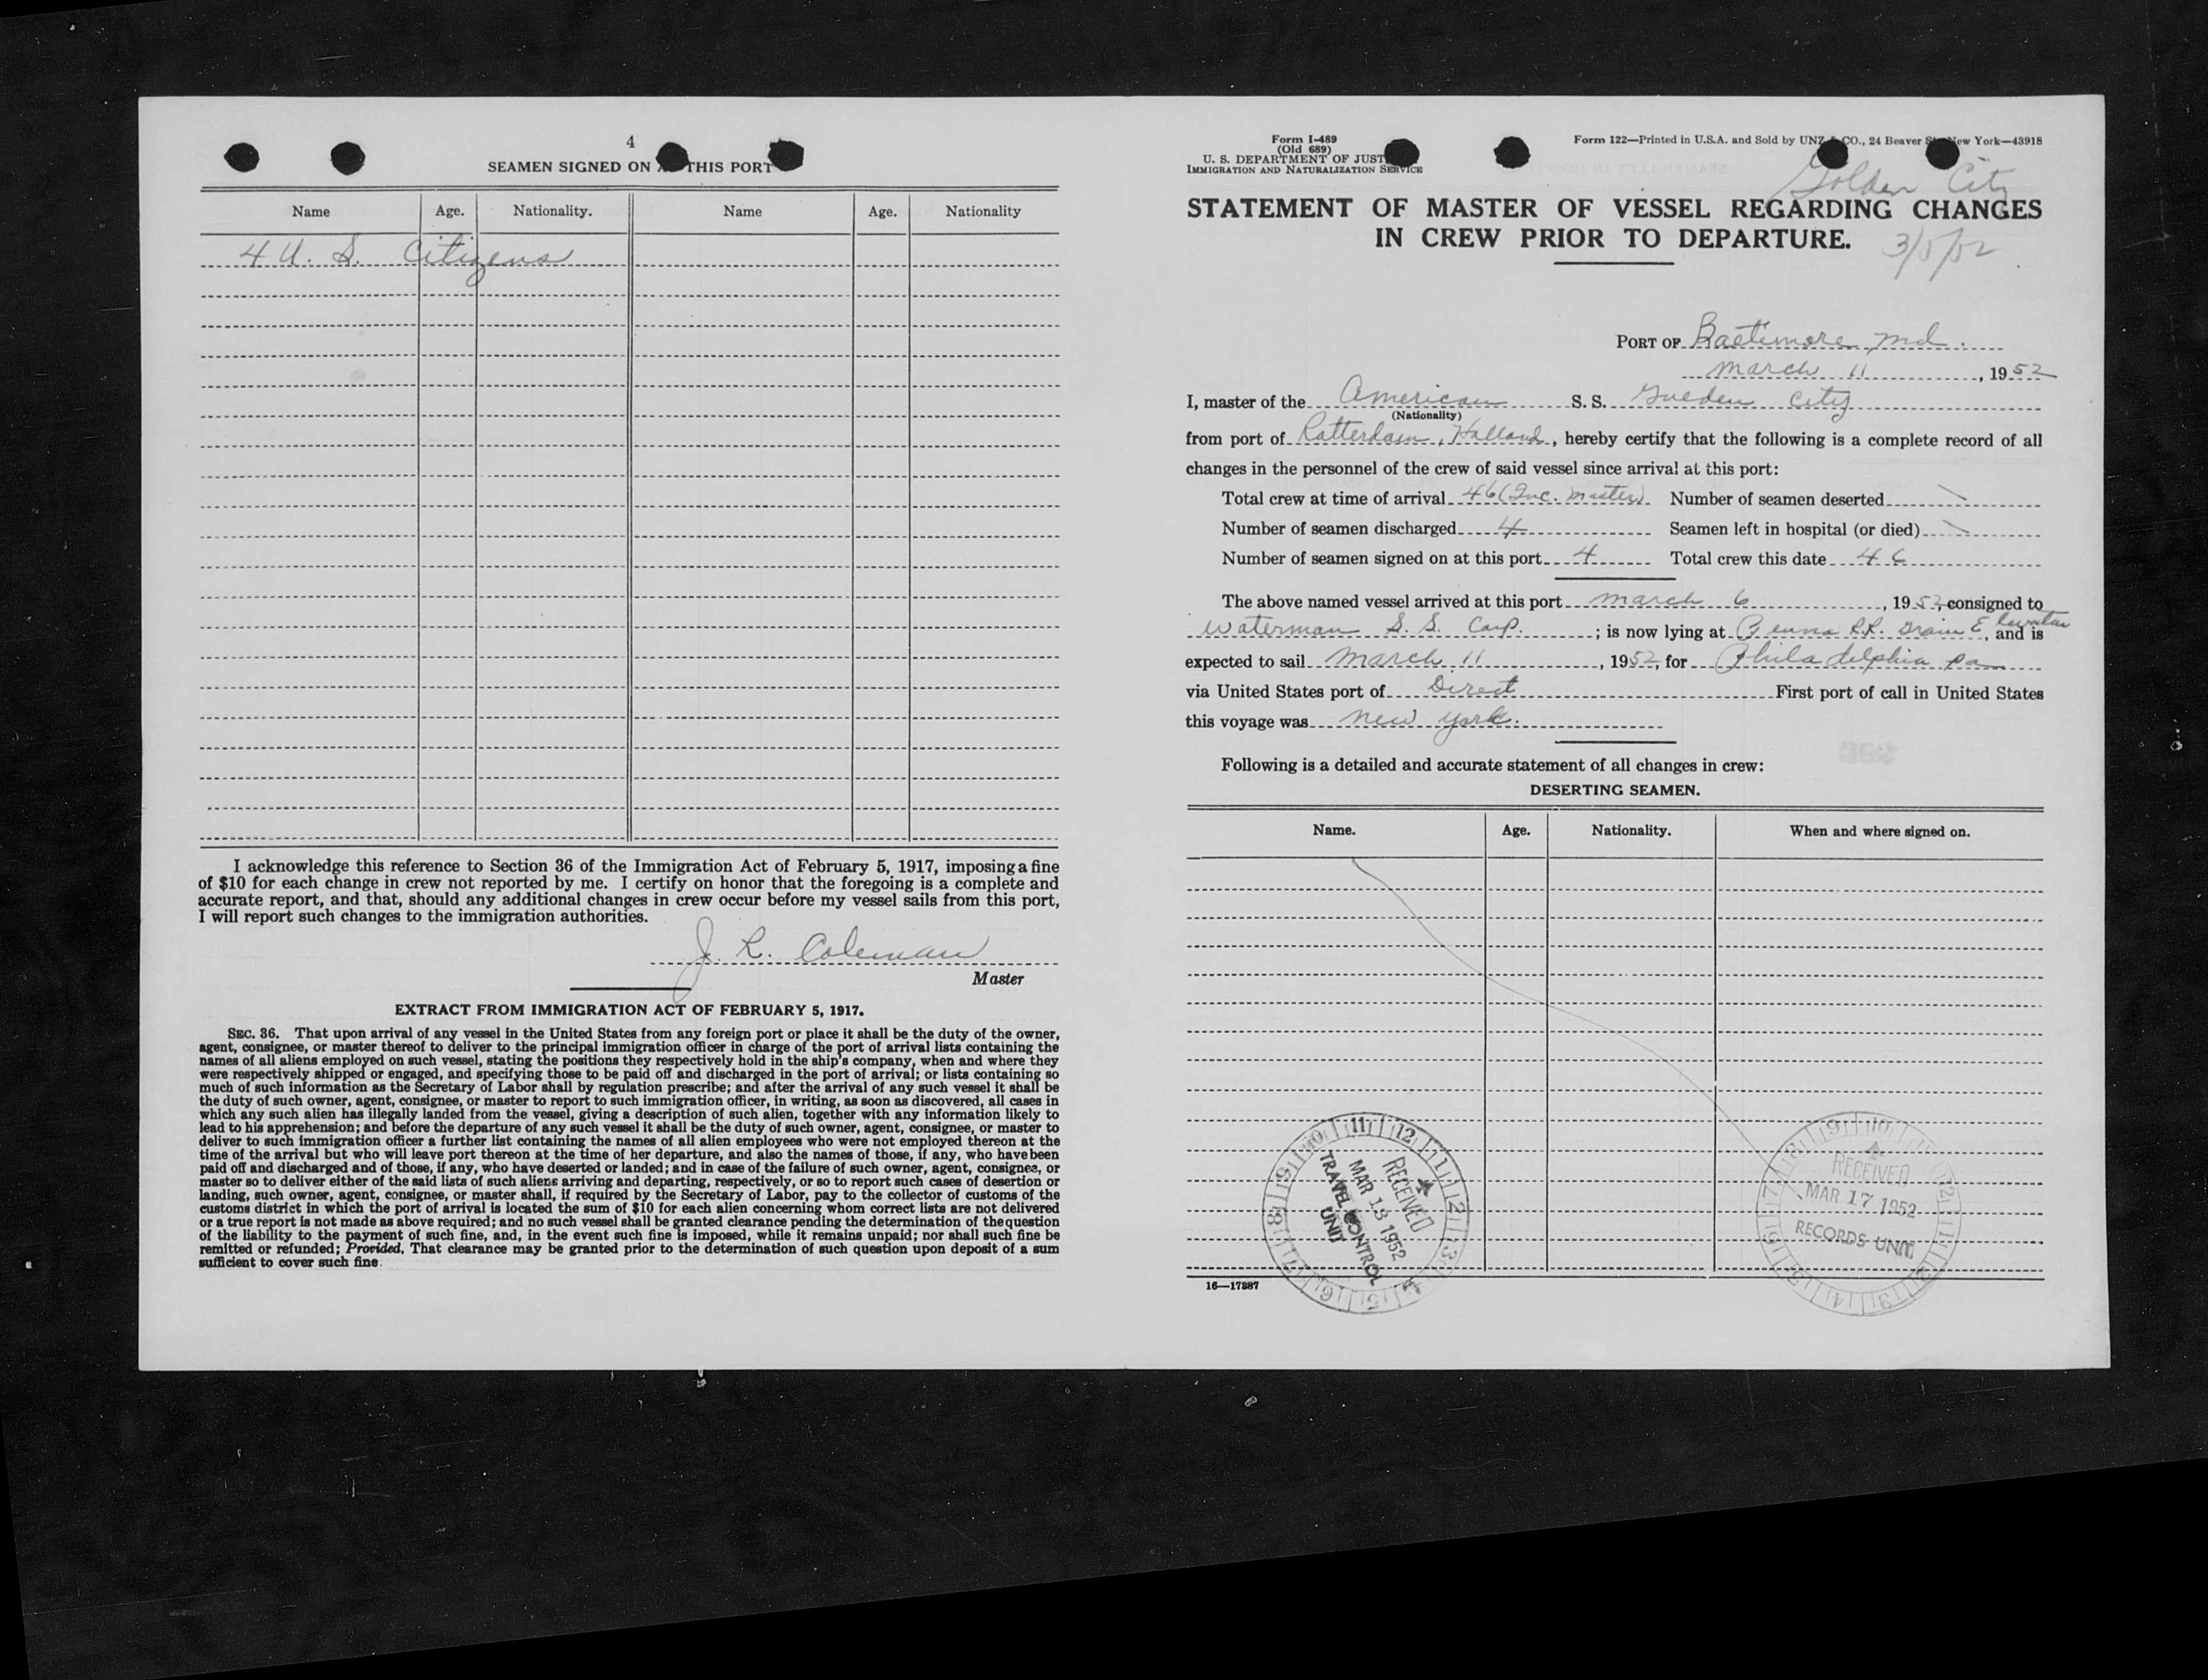 4
SEAMEN SIGNED ON THIS PORT
Name Age. Nationality. Name Age. Nationality
4 U. S. Citizens
I acknowledge this reference to Section 36 of the Immigration Act of February 5, 1917, imposing a fine
of $10 for each change in crew not reported by me. I certify on honor that the foregoing is a complete and
accurate report, and that, should any additional changes in crew occur before my vessel sails from this port,
I will report such changes to the immigration authorities.
J. R. Coleman
Master
EXTRACT FROM IMMIGRATION ACT OF FEBRUARY 5, 1917.
SEC. 36. That upon arrival of any vessel in the United States from any foreign port or place it shall be the duty of the owner,
agent, consignee, or master thereof to deliver to the principal immigration officer in charge of the port of arrival lists containing the
names of all aliens employed on such vessel, stating the positions they respectively hold in the ship's company, when and where they
were respectively shipped or engaged, and specifying those to be paid off and discharged in the port of arrival; or lists containing so
much of such information as the Secretary of Labor shall by regulation prescribe; and after the arrival of any such vessel it shall be
the duty of such owner, agent, consignee, or master to report to such immigration officer, in writing, as soon as discovered, all cases in
which any such alien has illegally landed from the vessel, giving a description of such alien, together with any information likely to
lead to his apprehension; and before the departure of any such vessel it shall be the duty of such owner, agent, consignee, or master to
deliver to such immigration officer a further list containing the names of all alien employees who were not employed thereon at the
time of the arrival but who will leave port thereon at the time of her departure, and also the names of those, if any, who have been
paid off and discharged and of those, if any, who have deserted or landed; and in case of the failure of such owner, agent, consignee, or
master so to deliver either of the said lists of such aliens arriving and departing, respectively, or so to report such cases of desertion or
landing, such owner, agent, consignee, or master shall, if required by the Secretary of Labor, pay to the collector of customs of the
customs district in which the port of arrival is located the sum of $10 for each alien concerning whom correct lists are not delivered
or a true report is not made as above required; and no such vessel shall be granted clearance pending the determination of the question
of the liability to the payment of such fine, and, in the event such fine is imposed, while it remains unpaid; nor shall such fine be
remitted or refunded; Provided, That clearance may be granted prior to the determination of such question upon deposit of a sum
sufficient to cover such fine.
Form I-489
(Old 689)
U. S. DEPARTMENT OF JUST
IMMIGRATION AND NATURALIZATION SERVICE
Form 122—Printed in U.S.A. and Sold by UNZ & CO., 24 Beaver St., New York—43918
Golden City
STATEMENT OF MASTER OF VESSEL REGARDING CHANGES
IN CREW PRIOR TO DEPARTURE.
3/5/52
PORT OF Baltimore, Md.
March 11, 1952
I, master of the American S. S. Golden City
(Nationality)
from port of Rotterdam, Holland, hereby certify that the following is a complete record of all
changes in the personnel of the crew of said vessel since arrival at this port:
Total crew at time of arrival 46 (Inc. Master) Number of seamen deserted \
Number of seamen discharged 4 Seamen left in hospital (or died) \
Number of seamen signed on at this port 4 Total crew this date 46
The above named vessel arrived at this port March 6, 1952, consigned to
Waterman S. S. Corp.; is now lying at Penna R.R. Grain Elevator, and is
expected to sail March 11, 1952, for Philadelphia Pa
via United States port of Direct First port of call in United States
this voyage was New York.
Following is a detailed and accurate statement of all changes in crew:
DESERTING SEAMEN.
Name. Age. Nationality. When and where signed on.
RECEIVED
MAR 13 1952
TRAVEL CONTROL
UNIT
RECEIVED
MAR 17 1952
RECORDS UNIT
16—17887